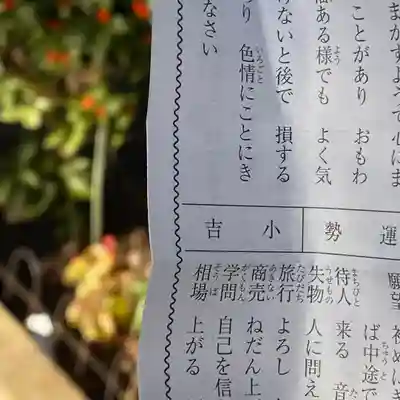 まかすようで心にま
ことがあり おもわ
ある様でも よく気
けないと後で 損する
り 色情にことにき
なさい
運勢
小吉
願望 初めにさ
ば中途で
待人 来る 音
失物 人に問え
旅行 よろし
商売 ねだん上
学問 自己を信
相場 上がる